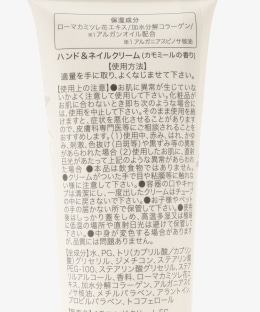 保湿成分
ローマカミツレ花エキス/加水分解コラーゲン/
※1アルガンオイル配合
※1 アルガニアスピノサ核油
ハンド&ネイルクリーム(カモミールの香り)
【使用方法】
適量を手に取り、よくなじませて下さい。
【使用上の注意】●お肌に異常が生じてい
ないかよく注意して使用して下さい。化粧品が
お肌に合わないとき即ち次のような場合に
は、使用を中止して下さい。そのまま使用を続
けますと、症状を悪化させることがあります
ので、皮膚科専門医等にご相談されることを
おすすめします。(1)使用中、赤み、はれ、か
ゆみ、刺激、色抜け(白斑等)や黒ずみ等の異
常があらわれた場合(2)使用したお肌に、直射
日光があたって上記のような異常があらわれ
た場合●本品は飲食物ではありません。
●クリームがついた手で目や粘膜等に触れな
いよう注意して下さい。●容器の口やキャッ
プは清潔にし、一度出したクリームはチューブ
に戻さないで下さい。●お子様やペッ
トの手の届かない所で保管して下さい。●使用
後はしっかり蓋をしめ、高温多湿又は極端
に低温の場所や直射日光を避けて保管して下
さい。●中身が変色する場合があります
が、品質には問題ありません。
【全成分】水、PG、トリ(カプリル酸/カプリン
酸)グリセリル、ジメチコン、ステアリン酸
PEG-100、ステアリン酸グリセリル、ステ
アリルアルコール、香料、ローマカミツレ花
エキス、加水分解コラーゲン、アルガニアスピ
ノサ核油、メチルパラベン、アラントイン
プロピルパラベン、トコフェロール